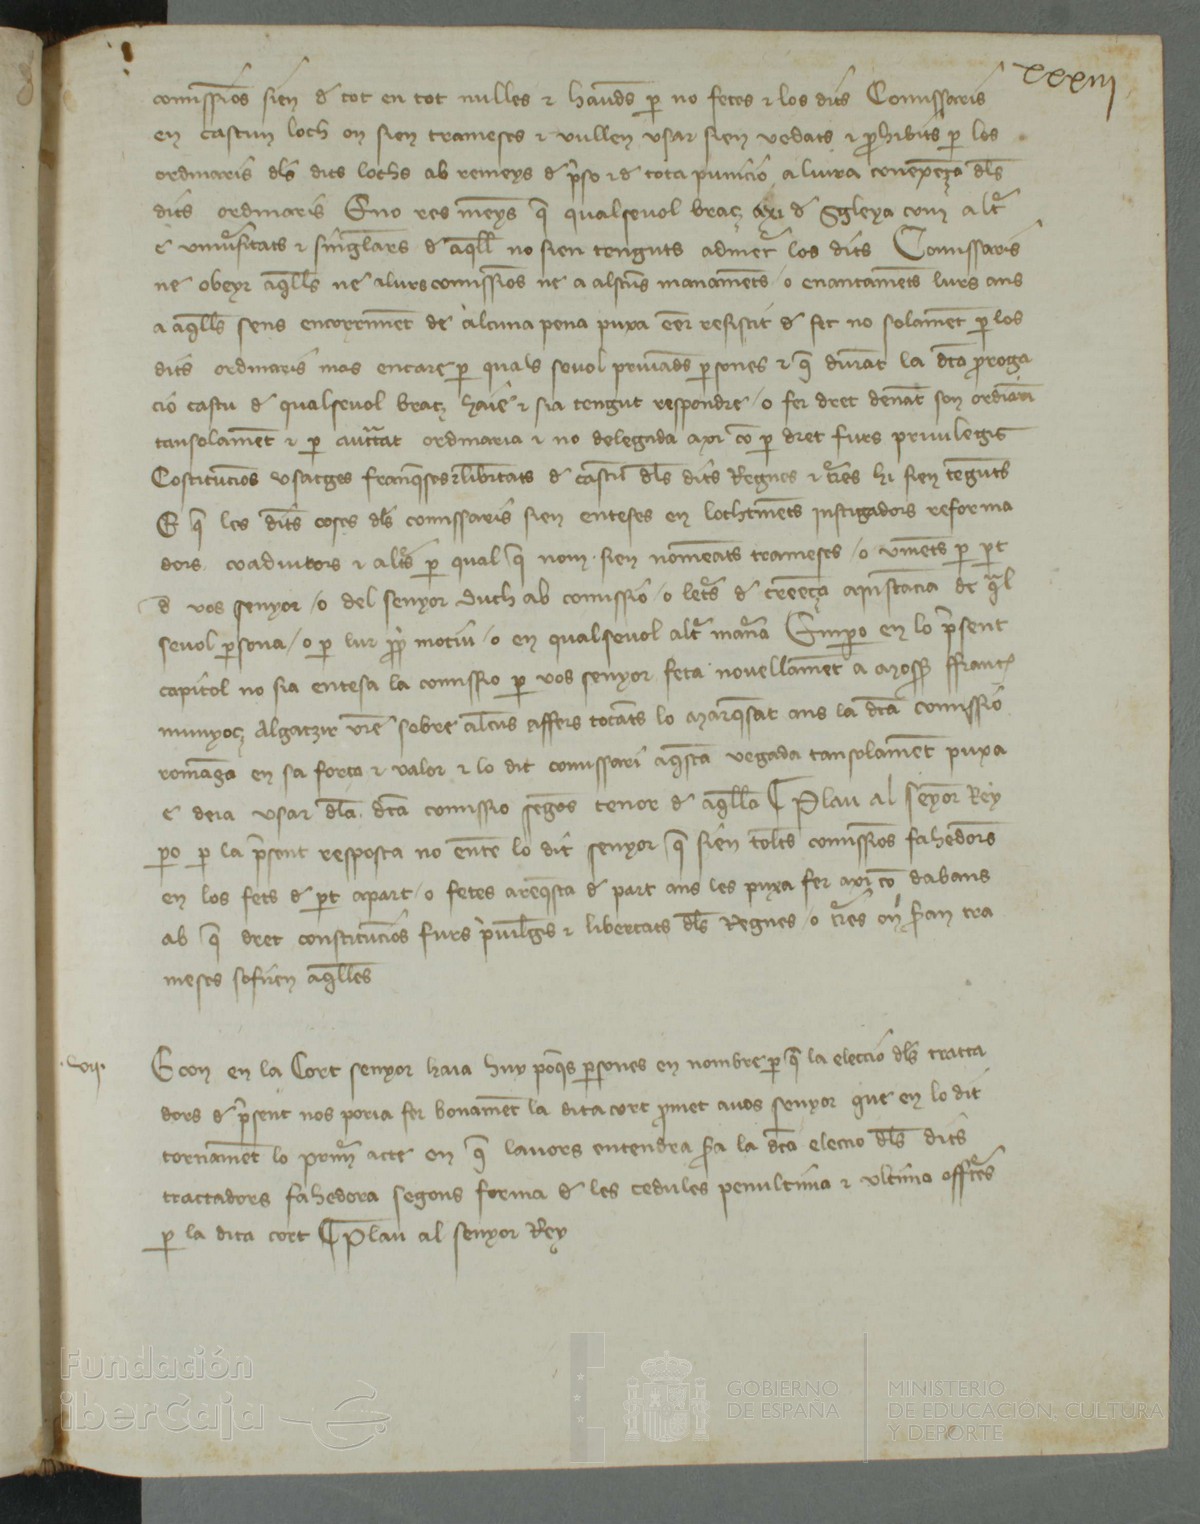 xxxiij
comissios sien d tot en tot nulles & hauds p no fetes & los dits Comissaris
en cascun loch on sien trameses & vullen vsar sien vedats & phibits p los
ordinaris dls dits lochs ab remeys d pso & d tota punicio a lura conexeça dls
dits ordinaris Eno res meys q qualseuol braç axi d Sgleya com altr
e vniusitats & singlars d aqll no sien tenguts admetr los dits Comissaris
ne obeyr aqlls ne a lurs comissios ne a alscus manamets / o enantamets lurs ans
a aqlls sens encorrimet de alcuna pena puxa eer resistit d fet no solamet p los
dits ordinaris mas encare p quals seuol priuads psones & q durat la dta proroga
cio cascu d qualseuol braç haie & sia tengut respondre / o fer dret denat son ordiari
tansolamet & p auctat ordinaria & no delegada axi co p dret furs priuilegis
Costitucios vsatges franqses & libertats d cascu dls dits Regnes & tres hi sien teguts
E q les dits coses dls comissaris sien enteses en lochtinets instigadors reforma
dors coadiutors & altrs p qual q nom sien nomeats trameses / o vinets p pt
d vos senyor / o del senyor Duch ab comissio / o letrs d creeça a instacia de qal
seuol psona / o p lur ppi motiu / o en qualseuol altr manra Empo en lo psent
capitol no sia entesa la comissio p vos senyor feta nouellamet a mosse ffrancs
munyoç algatzir vre sobre alcus affers tocats lo marqsat ans la dta comissio
romaga en sa força & valor & lo dit comissari aqsta vegada tansolamet puxa
e deia vsar dla dta comissio segos tenor d aqlla Plau al senyor Rey
po p la psent resposta no ente lo dit senyor q sien tolts comissios fahedors
en los fets d pt apart / o fetes a reqsta d part ans les puxa fer axi co dabans
ab q dret constitucios furs puilegs & libertats dls Regnes / o tres on sran tra
meses sofiren aqlles
.vij. E con en la Cort senyor haia huy poqs psones en nombre p q la eleccio dls tracta
dors d psent nos poria fer bonamet la dita cort pmet a vos senyor que en lo dit
tornamet lo primr acte en q lauors entendra sra la dta eleccio dls dits
tractadors fahedora segons forma d les cedules penultima & vltima offertes
p la dita cort Plau al senyor Rey
Fundación
iberCaja
GOBIERNO
DE ESPAÑA
MINISTERIO
DE EDUCACIÓN, CULTURA
Y DEPORTE